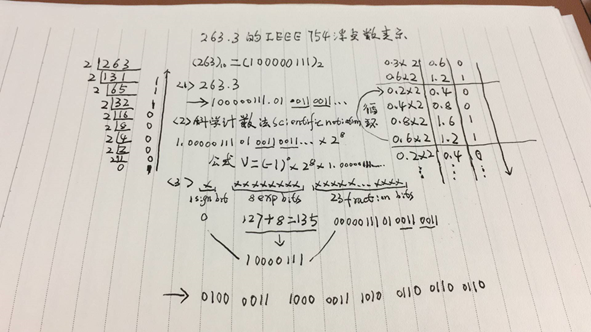 263.3的IEEE 754浮点数表示
(263)₁₀ = (100000111)₂
2 263
2 131 1
2 65 1
2 32 1
2 16 0
2 8 0
2 4 0
2 2 0
2 1 0
0 1
<1> 263.3
→ 100000111.01 0011 0011...
<2> 科学计数法 scientific notation
1.00000111 01 0011 0011... × 2⁸
公式 V=(-1)⁰ × 2⁸ × 1.0000011...
<3> x xxxxxxxx xxxxx...xxxx
1 sign bit 8 exp bits 23 fraction bits
0 127+8=135 00000111 01 0011 0011
10000111
→ 0100 0011 1000 0011 1010 0110 0110 0110
0.3×2 0.6 0
0.6×2 1.2 1
0.2×2 0.4 0
0.4×2 0.8 0
0.8×2 1.6 1
0.6×2 1.2 1
0.2×2 0.4 0
循环